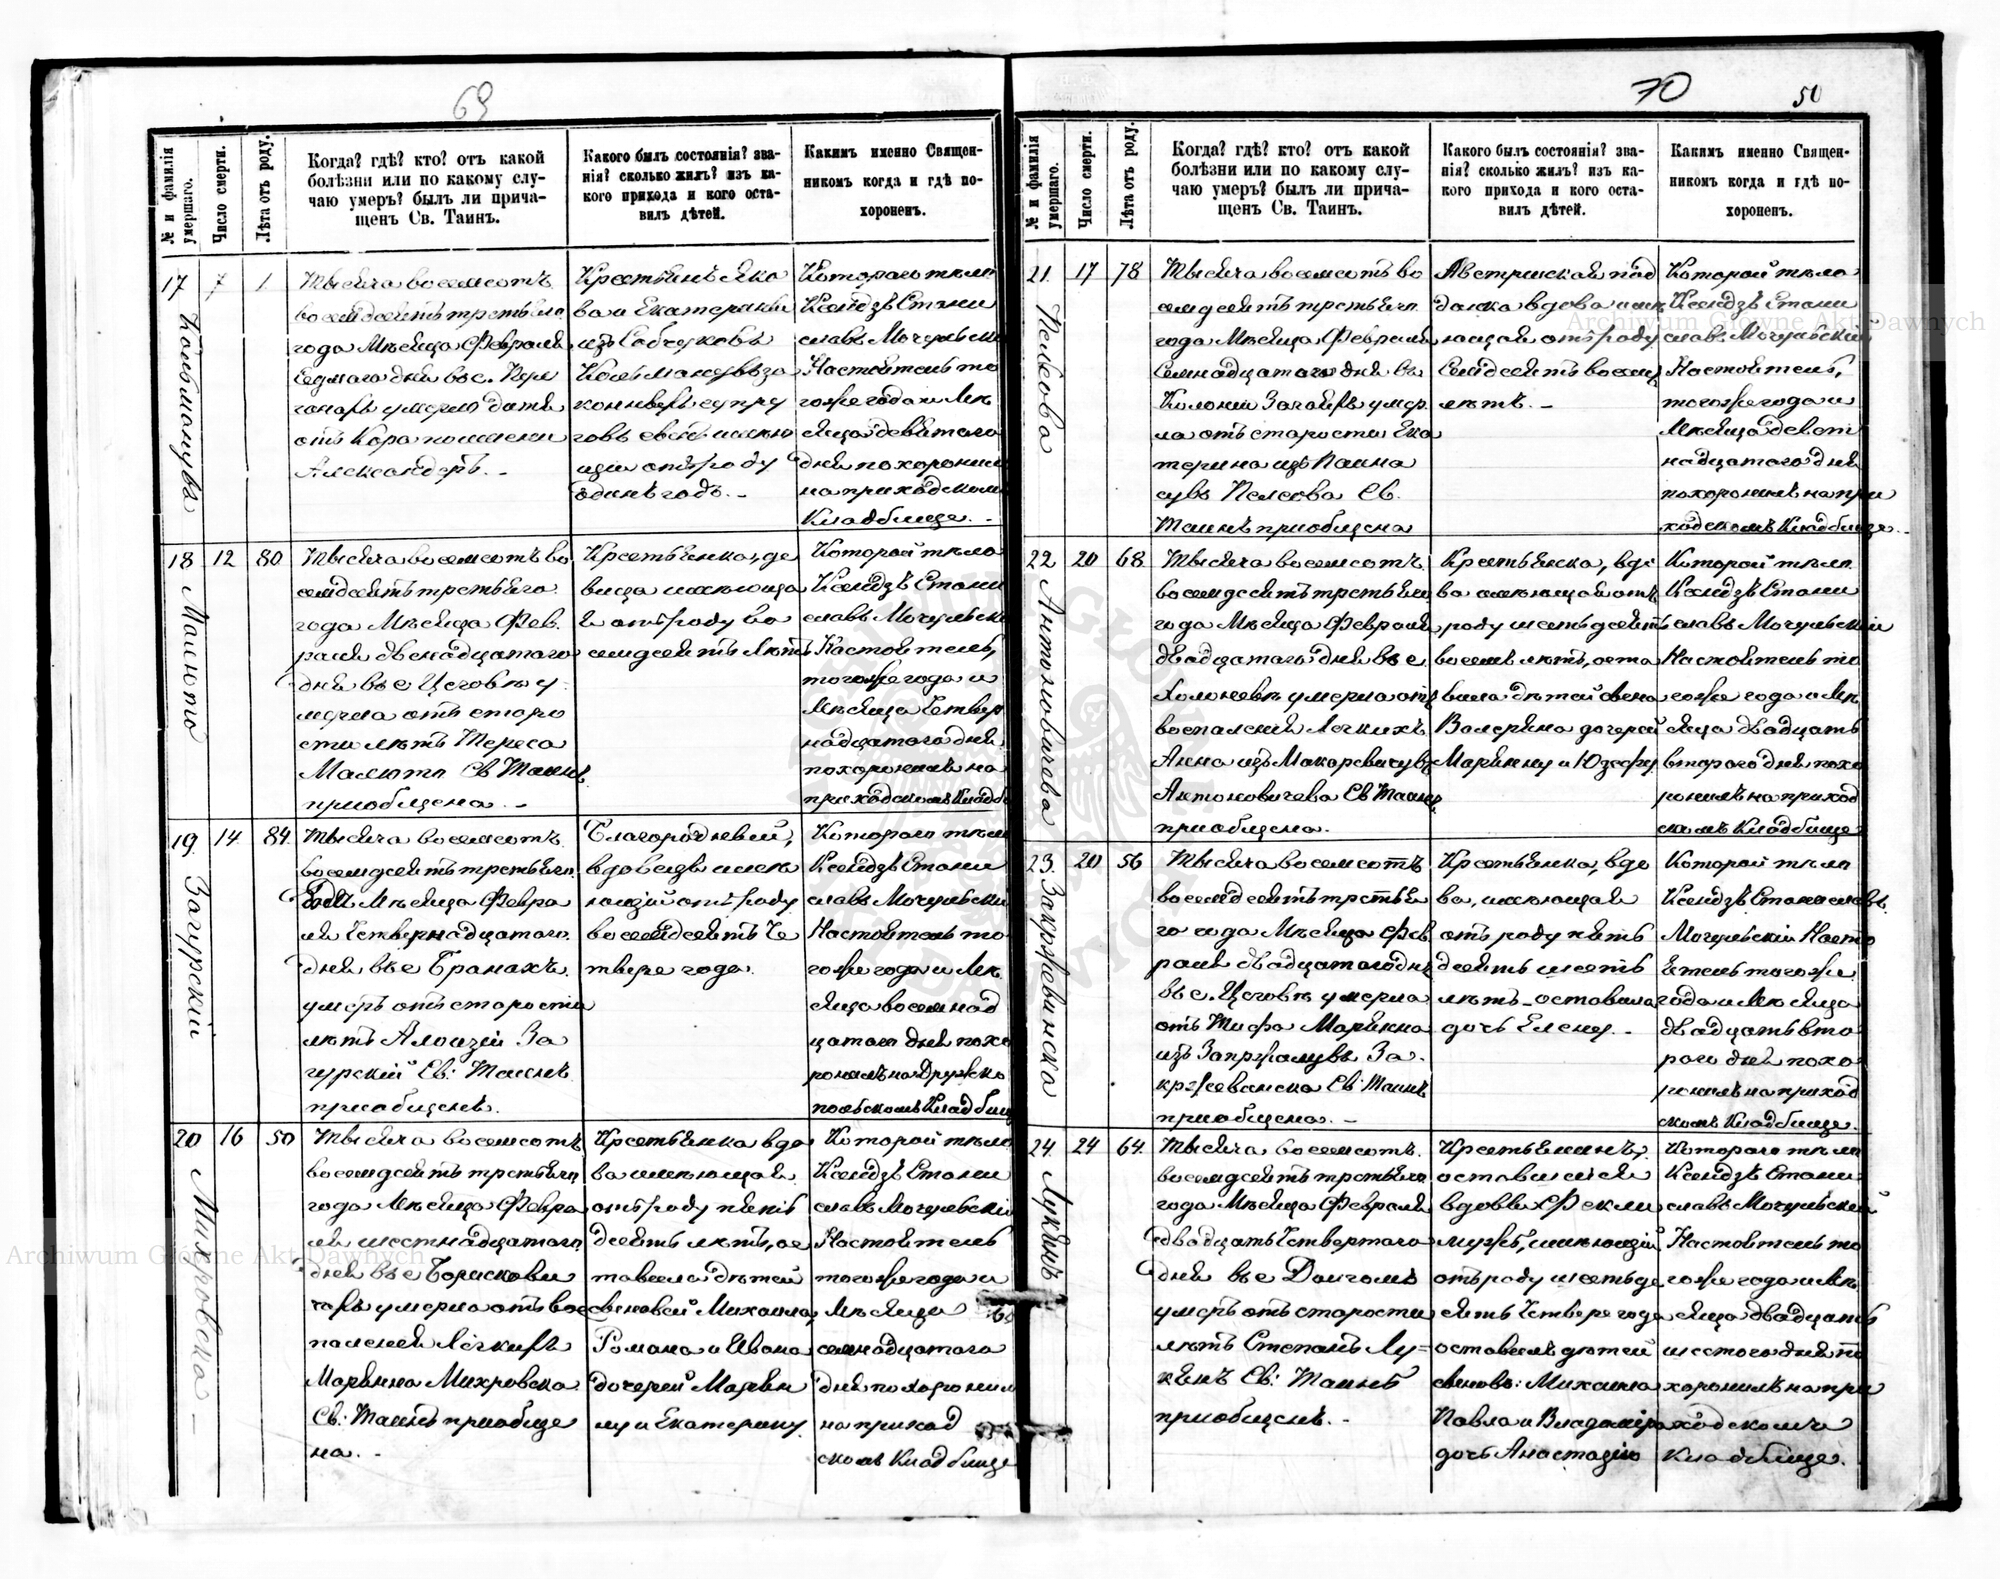 69
№ и фамилія умершаго.
Число смерти.
Лѣта отъ роду.
Когда? гдѣ? кто? отъ какой
болѣзни или по какому слу-
чаю умеръ? былъ ли прича-
щенъ Св. Таинъ.
Какого былъ состоянія? зва-
нія? сколько жилъ? изъ ка-
кого прихода и кого оста-
вилъ дѣтей.
Какимъ именно Священ-
никомъ когда и гдѣ по-
хороненъ.
17
7
1
Тысяча восемсотъ
восемдесятъ третьяго
года Мѣсяца Февраля
седмаго дня въ с.
умерло дитя
отъ Кора
Александръ. -
Крестьянъ Яко
ва и Екатерины
изъ
супру
говъ сынъ имѣю
щій отъ роду
одинъ годъ. -
Котораго тѣло
Ксендзъ Стани
славъ Мочульскі
Настоятель то
гоже года и Мѣ
сяца девятого
дня похоронил
на приходском
Кладбище. -
18
Малюто
12
80
Тысяча восемсотъ во
семдесятъ третьяго
года Мѣсяца Фев.
раля двенадцатого
дня въ с Цеговѣ у
мерла отъ старо
сти лѣтъ Тереса
Малюто Св Таинъ
приобщена. -
Крестьянка, де
вица имѣюща
я отъ роду во
семдесятъ лѣтъ
Которой тѣло
Ксендзъ Стани
славъ Мочульскі
Настоятель,
тогоже года и
Мѣсяца Четвер
надцатого дня
похоронилъ на
приходскомъ Кладб
19
Загурскій
14
84
Тысяча восемсотъ
восемдесятъ третьяго
года Мѣсяца Февра
ля Четвернадцатого
дня въ с Бранахъ
умеръ отъ старости
лѣтъ Алоизій За
гурскій Св: Таинъ
приобщенъ.
Благородневый,
вдовецъ имѣ
ющій отъ роду
восемдесятъ Че
твере года.
Котораго тѣло
Ксендзъ Стани
славъ Мочульскі
Настоятель то
гоже года и Мѣ
сяца восемнад
цатого дня похо
ронилъ на Дружко
польскомъ Кладбищ
20
Михровска
16
50
Тысяча восемсотъ
восемдесятъ третьяго
года Мѣсяца Февра
ля шестнадцатого
дня въ с Борискови
чахъ умерла отъ вос
паления Лёгкихъ
Марьянна Михровска
Св: Таинъ приобще
на. -
Крестьянка вдо
ва имѣющая
отъ роду пять
десятъ лѣтъ, ос
тавила дѣтей
сыновей Михаила,
Романа и Ивана
дочерей Марьян
ну и Екатерину
Которой тѣло
Ксендзъ Стани
славъ Мочульскій
Настоятель
тогоже года и
Мѣсяца
семнадцатого
дня похоронил
на приход
скомъ Кладбище
70
50
№ и фамилія умершаго.
Число смерти.
Лѣта отъ роду.
Когда? гдѣ? кто? отъ какой
болѣзни или по какому слу-
чаю умеръ? былъ ли прича-
щенъ Св. Таинъ.
Какого былъ состоянія? зва-
нія? сколько жилъ? изъ ка-
кого прихода и кого оста-
вилъ дѣтей.
Какимъ именно Священ-
никомъ когда и гдѣ по-
хороненъ.
21
17
78
Тысяча восемсотъ во
семдесятъ третьяго
года Мѣсяца Февраля
Семнадцатого дня въ
Колонии умер
ла отъ старости Ека
терина изъ
Св.
Таинъ приобщена
Австрийская под
данка вдова имѣ
ющая отъ роду
Семдесятъ восемъ
лѣтъ. -
Которой тѣло
Ксендзъ Стани
славъ Мочульскій
Настоятель,
тогоже года и
Мѣсяца девят
надцатого дня
похоронилъ на при
ходскомъ Кладбище. -
22
Антоновичева
20
68
Тысяча восемсотъ
восемдесятъ третьяго
года Мѣсяца Февраля
двадцатого дня въ с
Холоневѣ умерла отъ
воспаления Легкихъ
Анна изъ Макаревичувъ
Антоновичева Св Таинъ
приобщена.
Крестьянка, вдо
ва имѣющая отъ
роду шестьдесятъ
восемъ лѣтъ, оста
вила дѣтей сына
Валериана дочерей
Марьянну и Юзефу.
Которой тѣло
Ксендзъ Стани
славъ Мочульскій
Настоятель то
гоже года и Мѣ
сяца двадцать
второго дня похо
ронилъ на приход
скомъ Кладбище
23.
Закржевинска
20
56
Тысяча восемсотъ
восемдесятъ третья
го года Мѣсяца Фев
раля двадцатого дня
въ с. Цеговѣ умерла
отъ Тифа Марьянна
изъ За.
кржевинска Св: Таинъ
приобщена. -
Крестьянка, вдо
ва, имѣющая
отъ роду пять
десятъ шесть
лѣтъ - оставила
дочь Елену. -
Которой тѣло
Ксендзъ Станиславъ
Мочульскій Насто
ятель тогоже
года и Мѣсяца
двадцать вто
рого дня похо
ронилъ на приход
скомъ Кладбище.
24
Лукянъ
24
64
Тысяча восемсотъ
восемдесятъ третьяго
года Мѣсяца Февраля
двадцать Четвертого
дня въ с
умеръ отъ старости
лѣтъ Степанъ Лу=
кянъ Св: Таинъ
приобщенъ. -
Крестьянинъ,
оставшійся
вдовы Феклы
мужъ, имѣющій
отъ роду шестьде
сятъ Четвере года
оставилъ дѣтей
сыновъ: Михаила
Павла и Владимира
дочь Анастазию
Котораго тѣло
Ксендзъ Стани
славъ Мочульскій
Настоятель то
гоже года и Мѣ
сяца двадцать
шестого дня по
хоронилъ на при
ходскомъ
Кладбище.
Archiwum Główne Akt Dawnych
Archiwum Główne Akt Dawnych